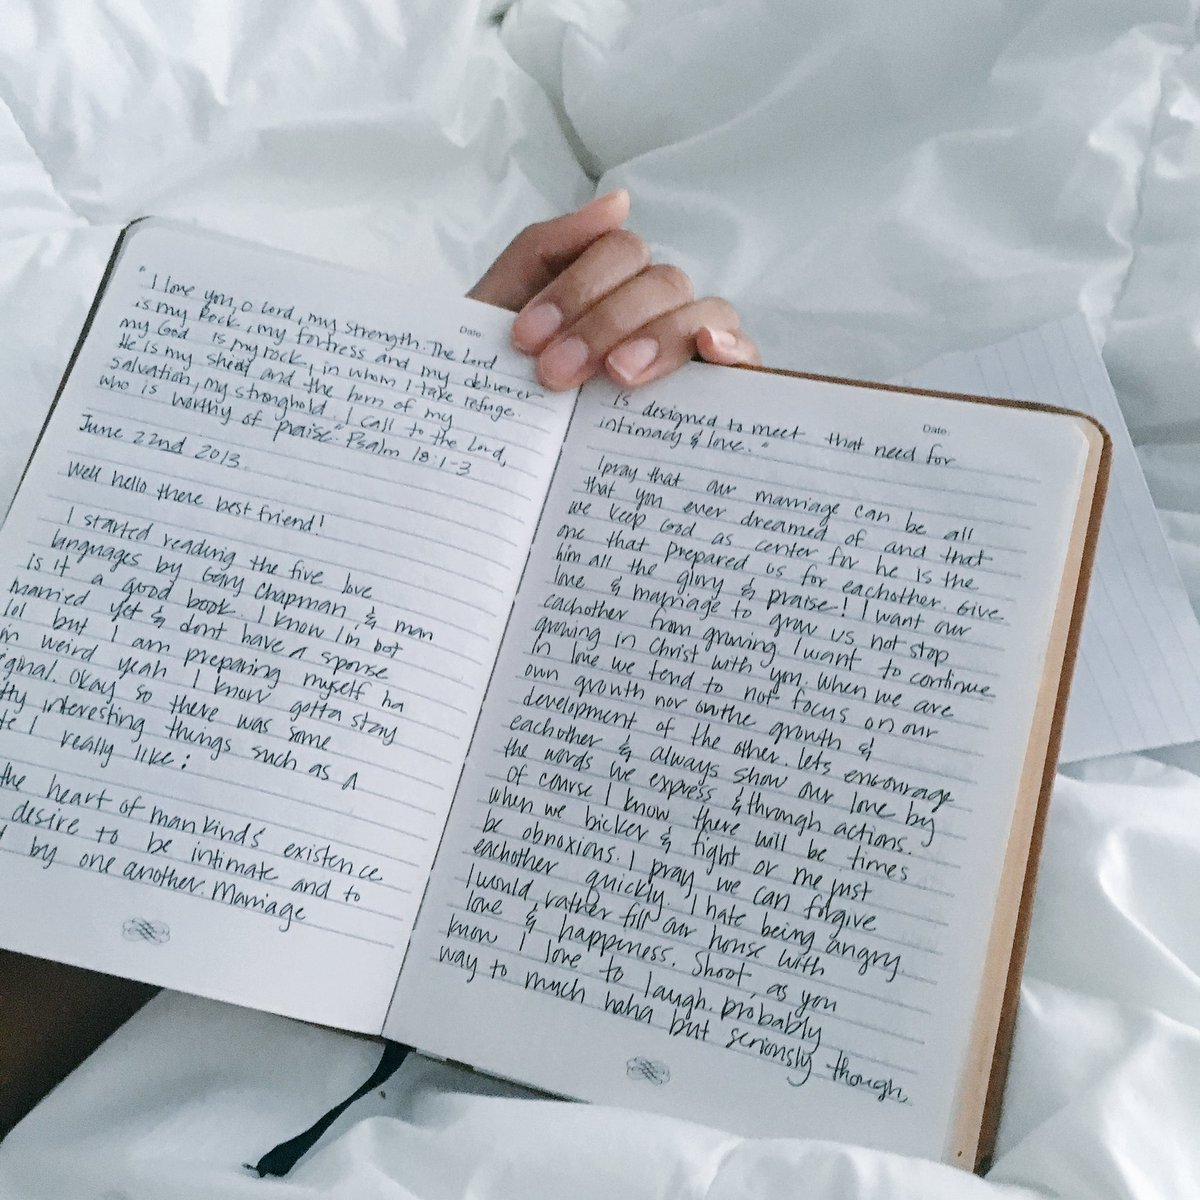 "I love you, O Lord, my strength. The Lord
is my Rock, my fortress and my deliverer
my God is my rock, in whom I take refuge.
He is my shield and the horn of my
salvation, my stronghold. I call to the Lord,
who is worthy of praise" Psalm 18:1-3
June 22nd 2013.
Well hello there best friend!
I started reading the five love
languages by Gary Chapman & man
is it a good book. I know I'm not
married yet & dont have a spouse
lol but I am preparing myself ha
in weird yeah I know gotta stay
Okay so there was some
interesting things such as a
I really like:
the heart of mankind's existence
desire to be intimate and to
by one another. Marriage
Date
is designed to meet that need for
intimacy & love."
Date
I pray that our marriage can be all
that you ever dreamed of and that
we keep God as center for he is the
one that prepared us for eachother. Give
him all the glory & praise! I want our
love & marriage to grow us not stop
eachother from growing. I want to continue
growing in Christ with you. When we are
in love we tend to not focus on our
own growth nor on the growth &
development of the other. lets encourage
eachother & always show our love by
the words we express & through actions.
Of course I know there will be times
when we bicker & fight or me just
be obnoxious. I pray we can forgive
eachother quickly. I hate being angry.
I would rather fill our house with
love & happiness. Shoot, as you
know I love to laugh. probably
way to much haha but seriously though,